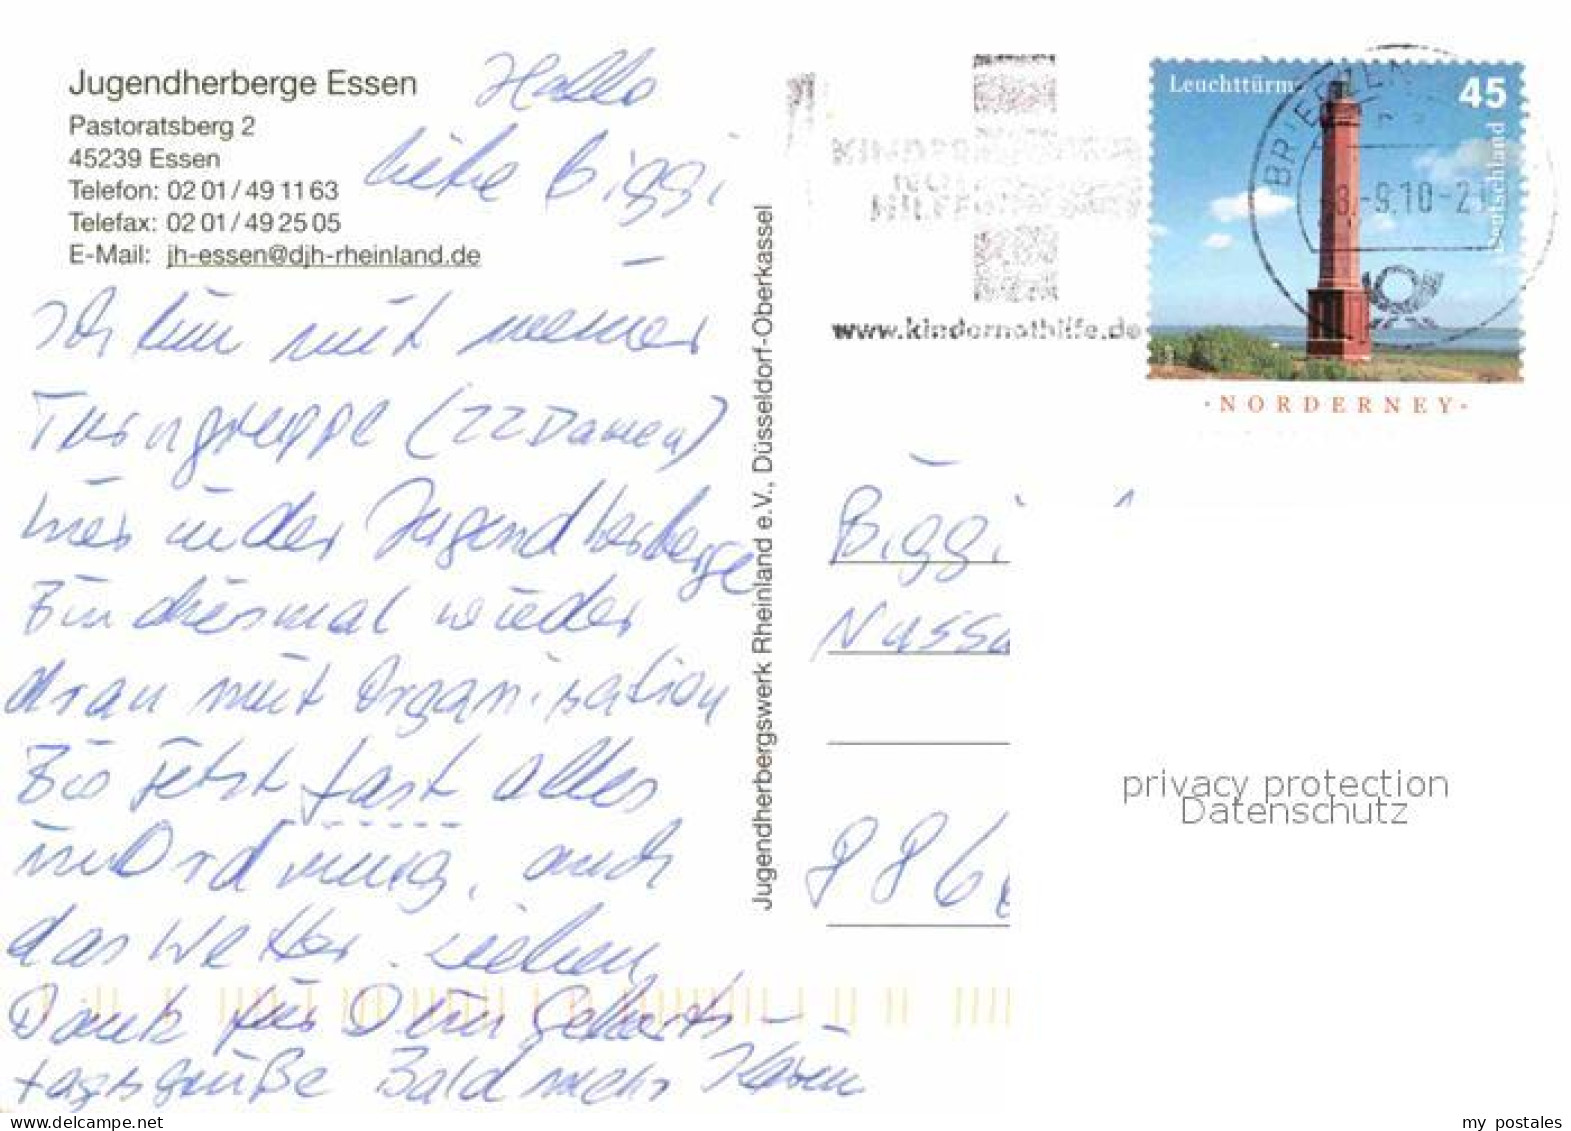 Jugendherberge Essen
Pastoratsberg 2
45239 Essen
Telefon: 02 01 / 49 11 63
Telefax: 02 01 / 49 25 05
E-Mail: jh-essen@djh-rheinland.de
Hallo
liebe Biggi
Ich bin mit meiner
Turngruppe (22 Damen)
hier in der Jugendherberge
Bin diesmal wieder
dran mit Organisation
Bis jetzt fast alles
in Ordnung, auch
das Wetter. Lieben
Dank für Deine Geburts-
tagsgrüße Bald mehr
Jugendherbergswerk Rheinland e.V., Düsseldorf-Oberkassel
www.kindernothilfe.de
Leuchttürme
45
Deutschland
·NORDERNEY·
-9.10-21
Biggi
Nussa
886
privacy protection
Datenschutz
www.delcampe.net
my_postales